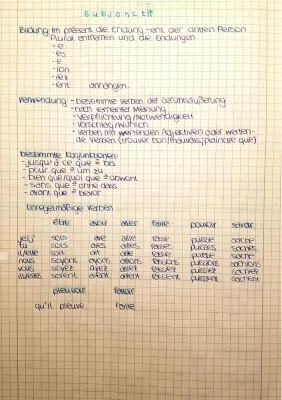 subjonctif
Bildung: Im présent die Endung -ent der dritten Person
Plural entfernen und die Endungen
-e
-es
-e
-ion
-iez
-ent anhängen.
Verwendung - bestimmte Verben der Gefühlsäußerung
- nach verneinter Meinung
- Verpflichtung/Notwendigkeit
- Vorschlag/Wunsch
- Verben mit wertenden Adjektiven oder werten-
de Verben (trouver bon/mauvais; plaindre que)
bestimmte Konjunktionen:
- jusqu'à ce que = bis
- pour que = um zu
- bien que/quoi que = obwohl
- sans que = ohne dass
- avant que = bevor
Unregelmäßige Verben
être avoir aller faire pouvoir savoir
je/j' sois aie aille fasse puisse sache
tu sois aies ailles fasses puisses saches
il/elle soit ait aille fasse puisse sache
nous soyons ayons allions fassions puissions sachions
vous soyez ayez alliez fassiez puissiez sachiez
ils/elles soient aient aillent fassent puissent sachent
pleuvoir
qu'il pleuve